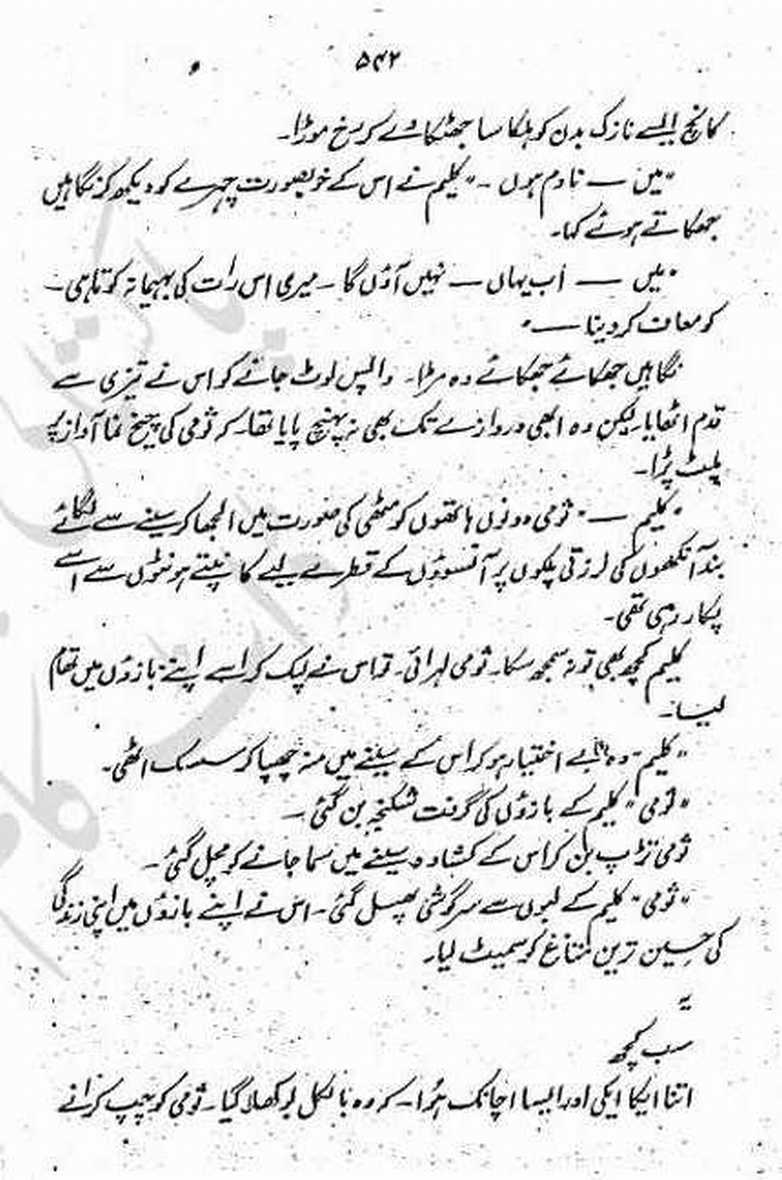 ۵۴۲
کانچ ایسے نازک بدن کو ہلکا سا جھٹکا دے کر رخ موڑا۔
"میں — نادم ہوں ۔" کلیم نے اس کے خوبصورت چہرے کو دیکھ کر نگاہیں
جھکاتے ہوئے کہا۔
"میں — اب یہاں — نہیں آؤں گا ۔ میری اس رات کی بہیمانہ کوتاہی ۔
کو معاف کر دینا —"
نگاہیں جھکائے جھکائے وہ مڑا۔ واپس لوٹ جانے کو اس نے تیزی سے
قدم اٹھایا۔ لیکن وہ ابھی دروازے تک بھی نہ پہنچ پایا تھا۔ کہ ثومی کی چیخ نما آواز پر
پلٹ پڑا۔
"کلیم —" ثومی دونوں ہاتھوں کو مٹھی کی صورت میں الجھا کر سینے سے لگائے
بند آنکھوں کی لرزتی پلکوں پر آنسوؤں کے قطرے لیے کانپتے ہونٹوں سے اسے
پکار رہی تھی۔
کلیم کچھ بھی تو نہ سمجھ سکا۔ ثومی لہرائی۔ تو اس نے لپک کر اسے اپنے بازوؤں میں تھام
لیا۔
"کلیم" وہ بے اختیار ہو کر اس کے سینے میں منہ چھپا کر سسک اٹھی۔
"ثومی" کلیم کے بازوؤں کی گرفت شکنجہ بن گئی ۔
ثومی تڑپ بن کر اس کے کشادہ سینے میں سما جانے کو مچل گئی ۔
"ثومی" کلیم کے لبوں سے سرگوشی پھسل گئی ۔ اس نے اپنے بازوؤں میں اپنی زندگی
کی حسین ترین متاع کو سمیٹ لیا۔
یہ
سب کچھ
اتنا ایکا ایکی اور ایسا اچانک ہوا ۔ کہ وہ بالکل بوکھلا گیا ۔ ثومی کو چپ کرانے